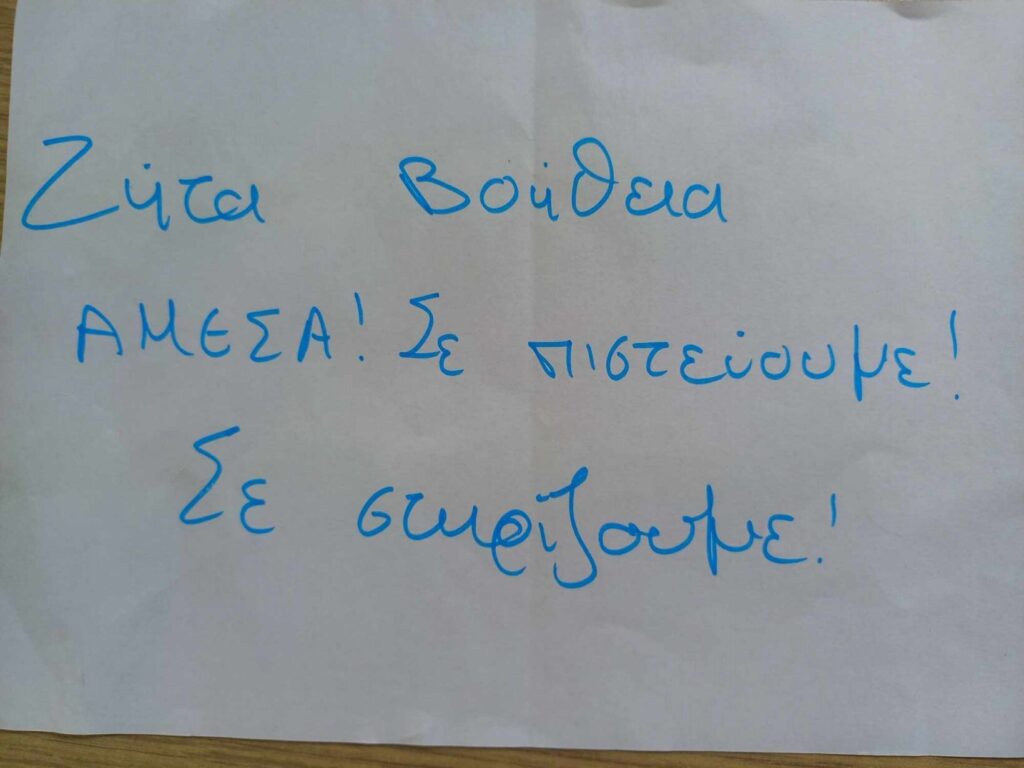 Ζήτα βοήθεια
ΑΜΕΣΑ! Σε πιστεύουμε!
Σε στηρίζουμε!